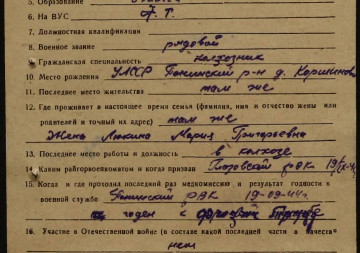 5. Образование
6. На ВУС А. Т.
7. Должностная квалификация
8. Военное звание рядовой
9. Гражданская специальность колхозник
10. Место рождения УАССР Понинский р-н д. Коршиков
11. Последнее место жительства там же
12. Где проживает в настоящее время семья (фамилия, имя и отчество жены или
родителей и точный их адрес) там же
Жена Мария Григорьевна
13. Последнее место работы и должность в колхозе
14. Каким райгорвоенкоматом и когда призван РВК
15. Когда и где проходил последний раз медкомиссию и результат годности к
военной службе Понинский РВК 19-09-44г.
годен с
16. Участие в Отечественной войне (в составе какой последней части и в качестве
нет